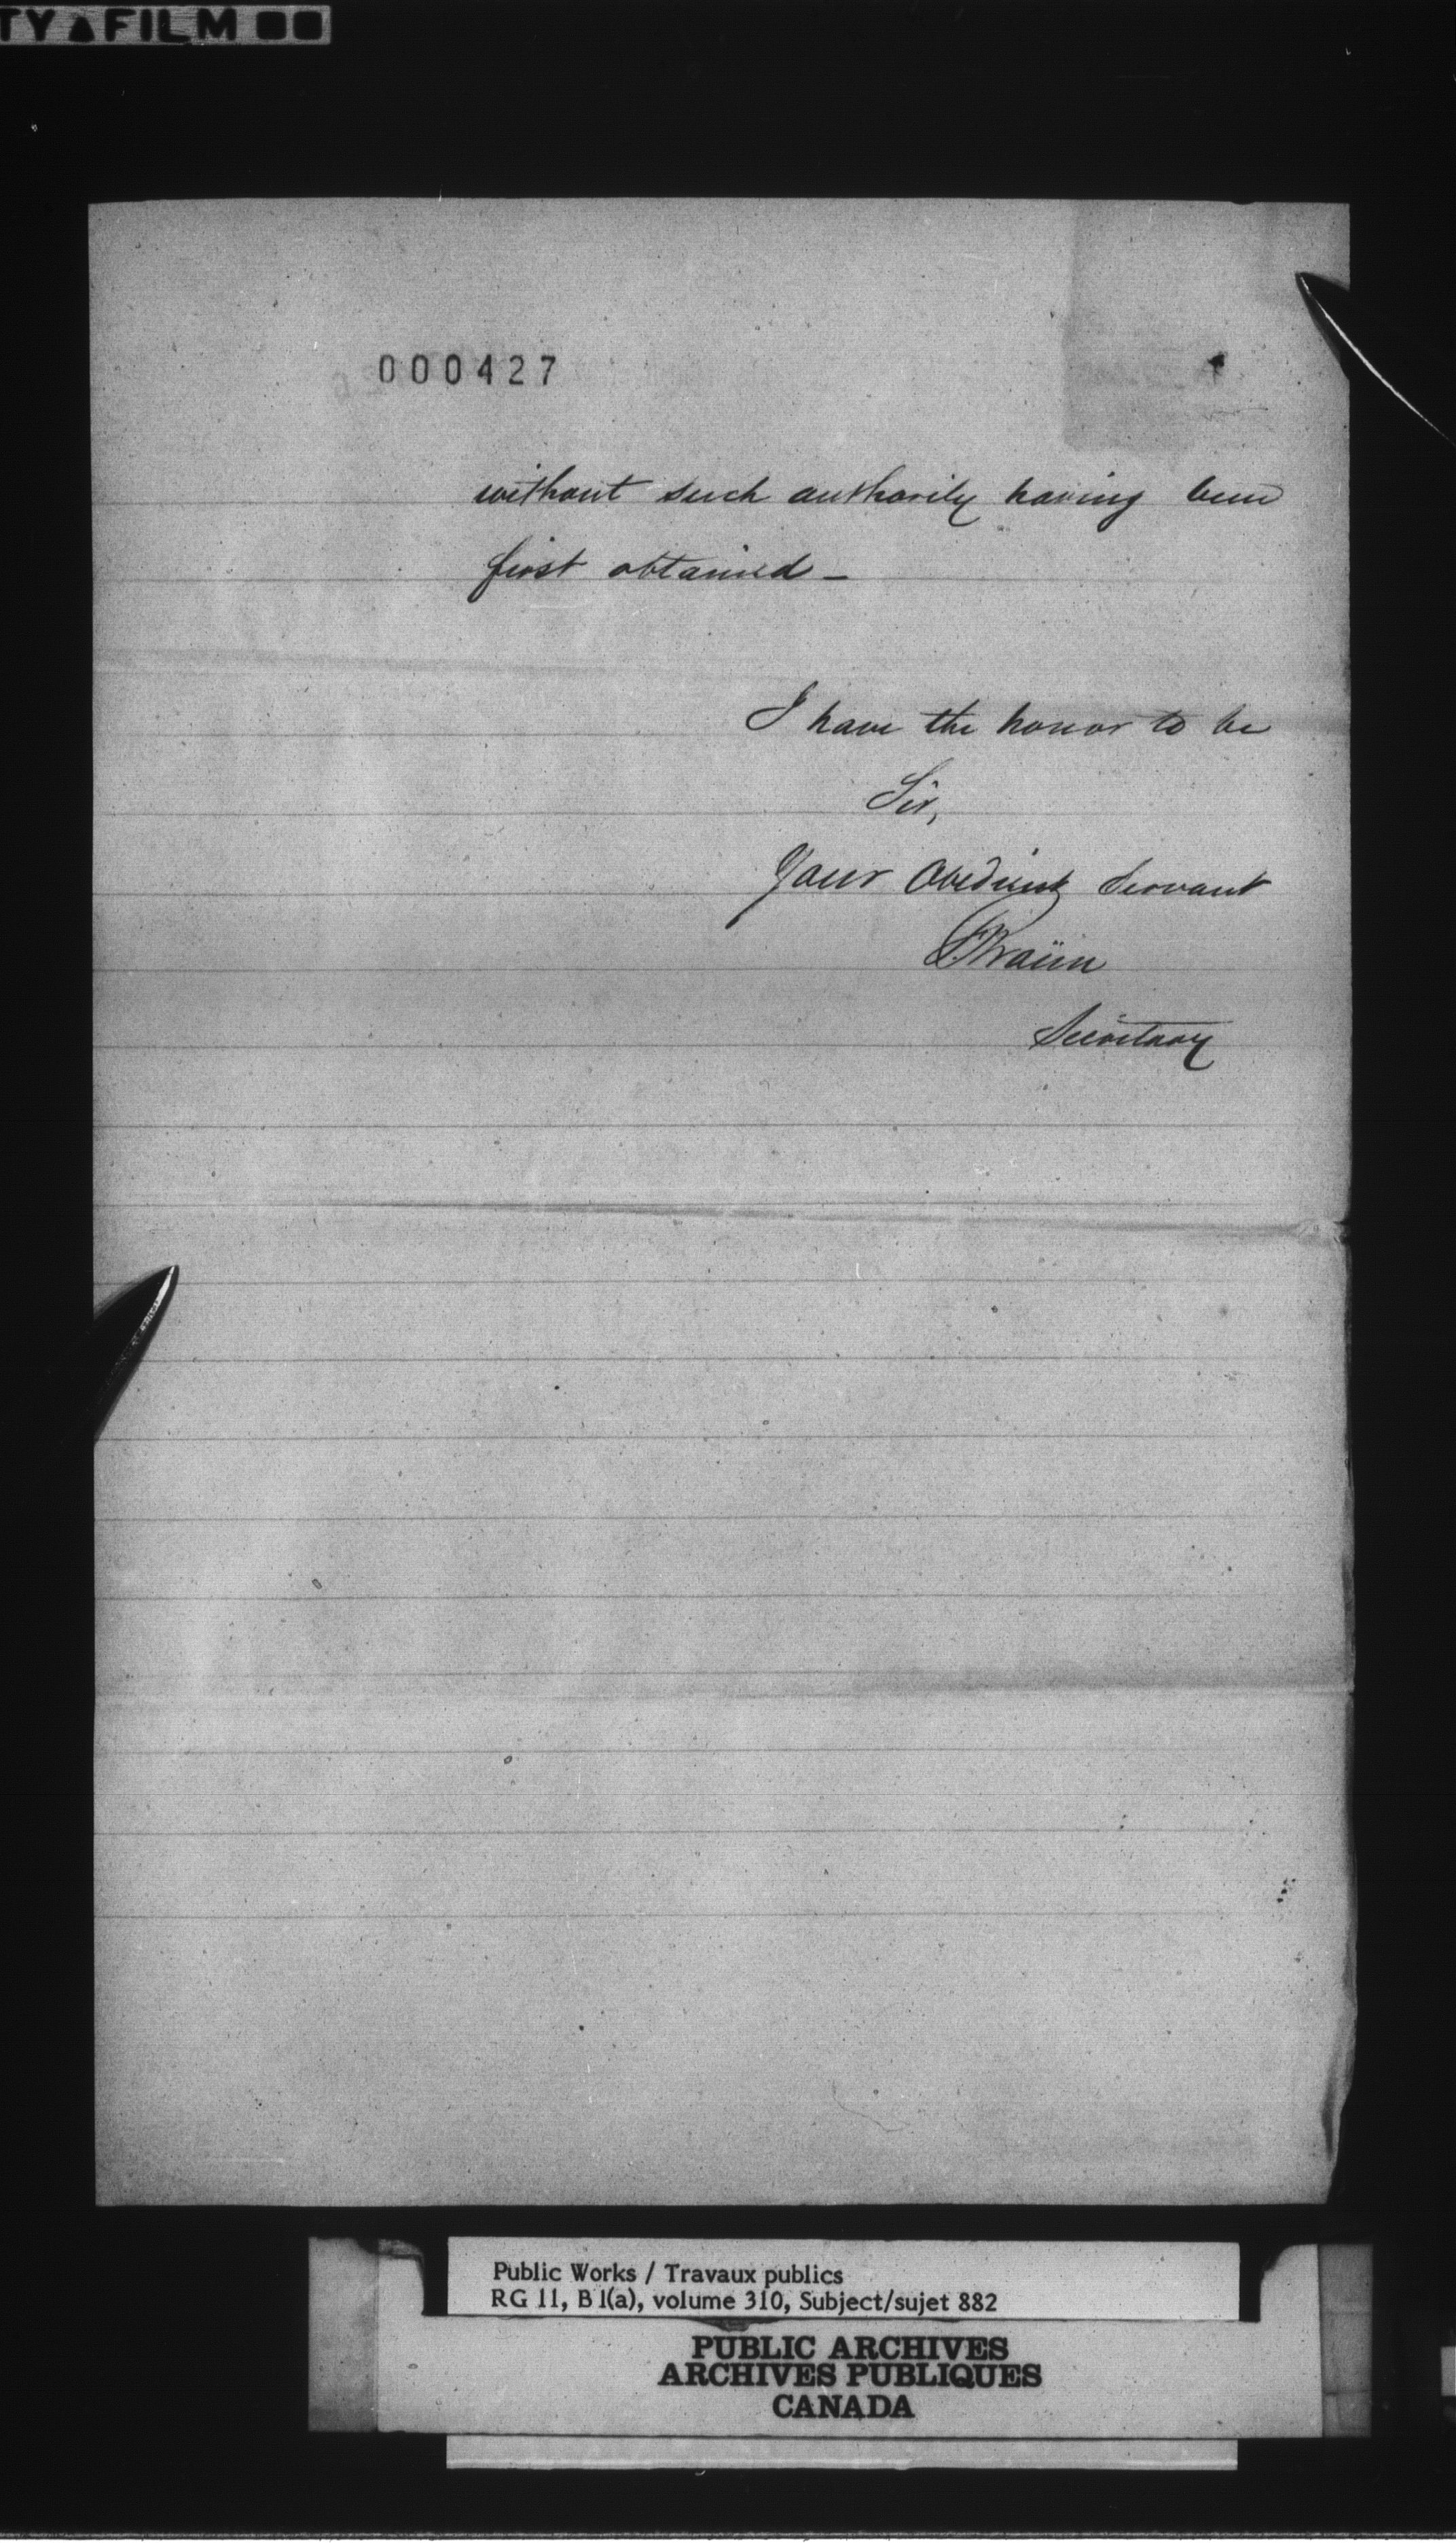 TY▲FILM
000427
without such authority having been
first obtained _
I have the honor to be
Sir,
Your Obedient Servant
F. Braün
Secretary
Public Works / Travaux publics
RG 11, B1(a), volume 310, Subject/sujet 882
PUBLIC ARCHIVES
ARCHIVES PUBLIQUES
CANADA